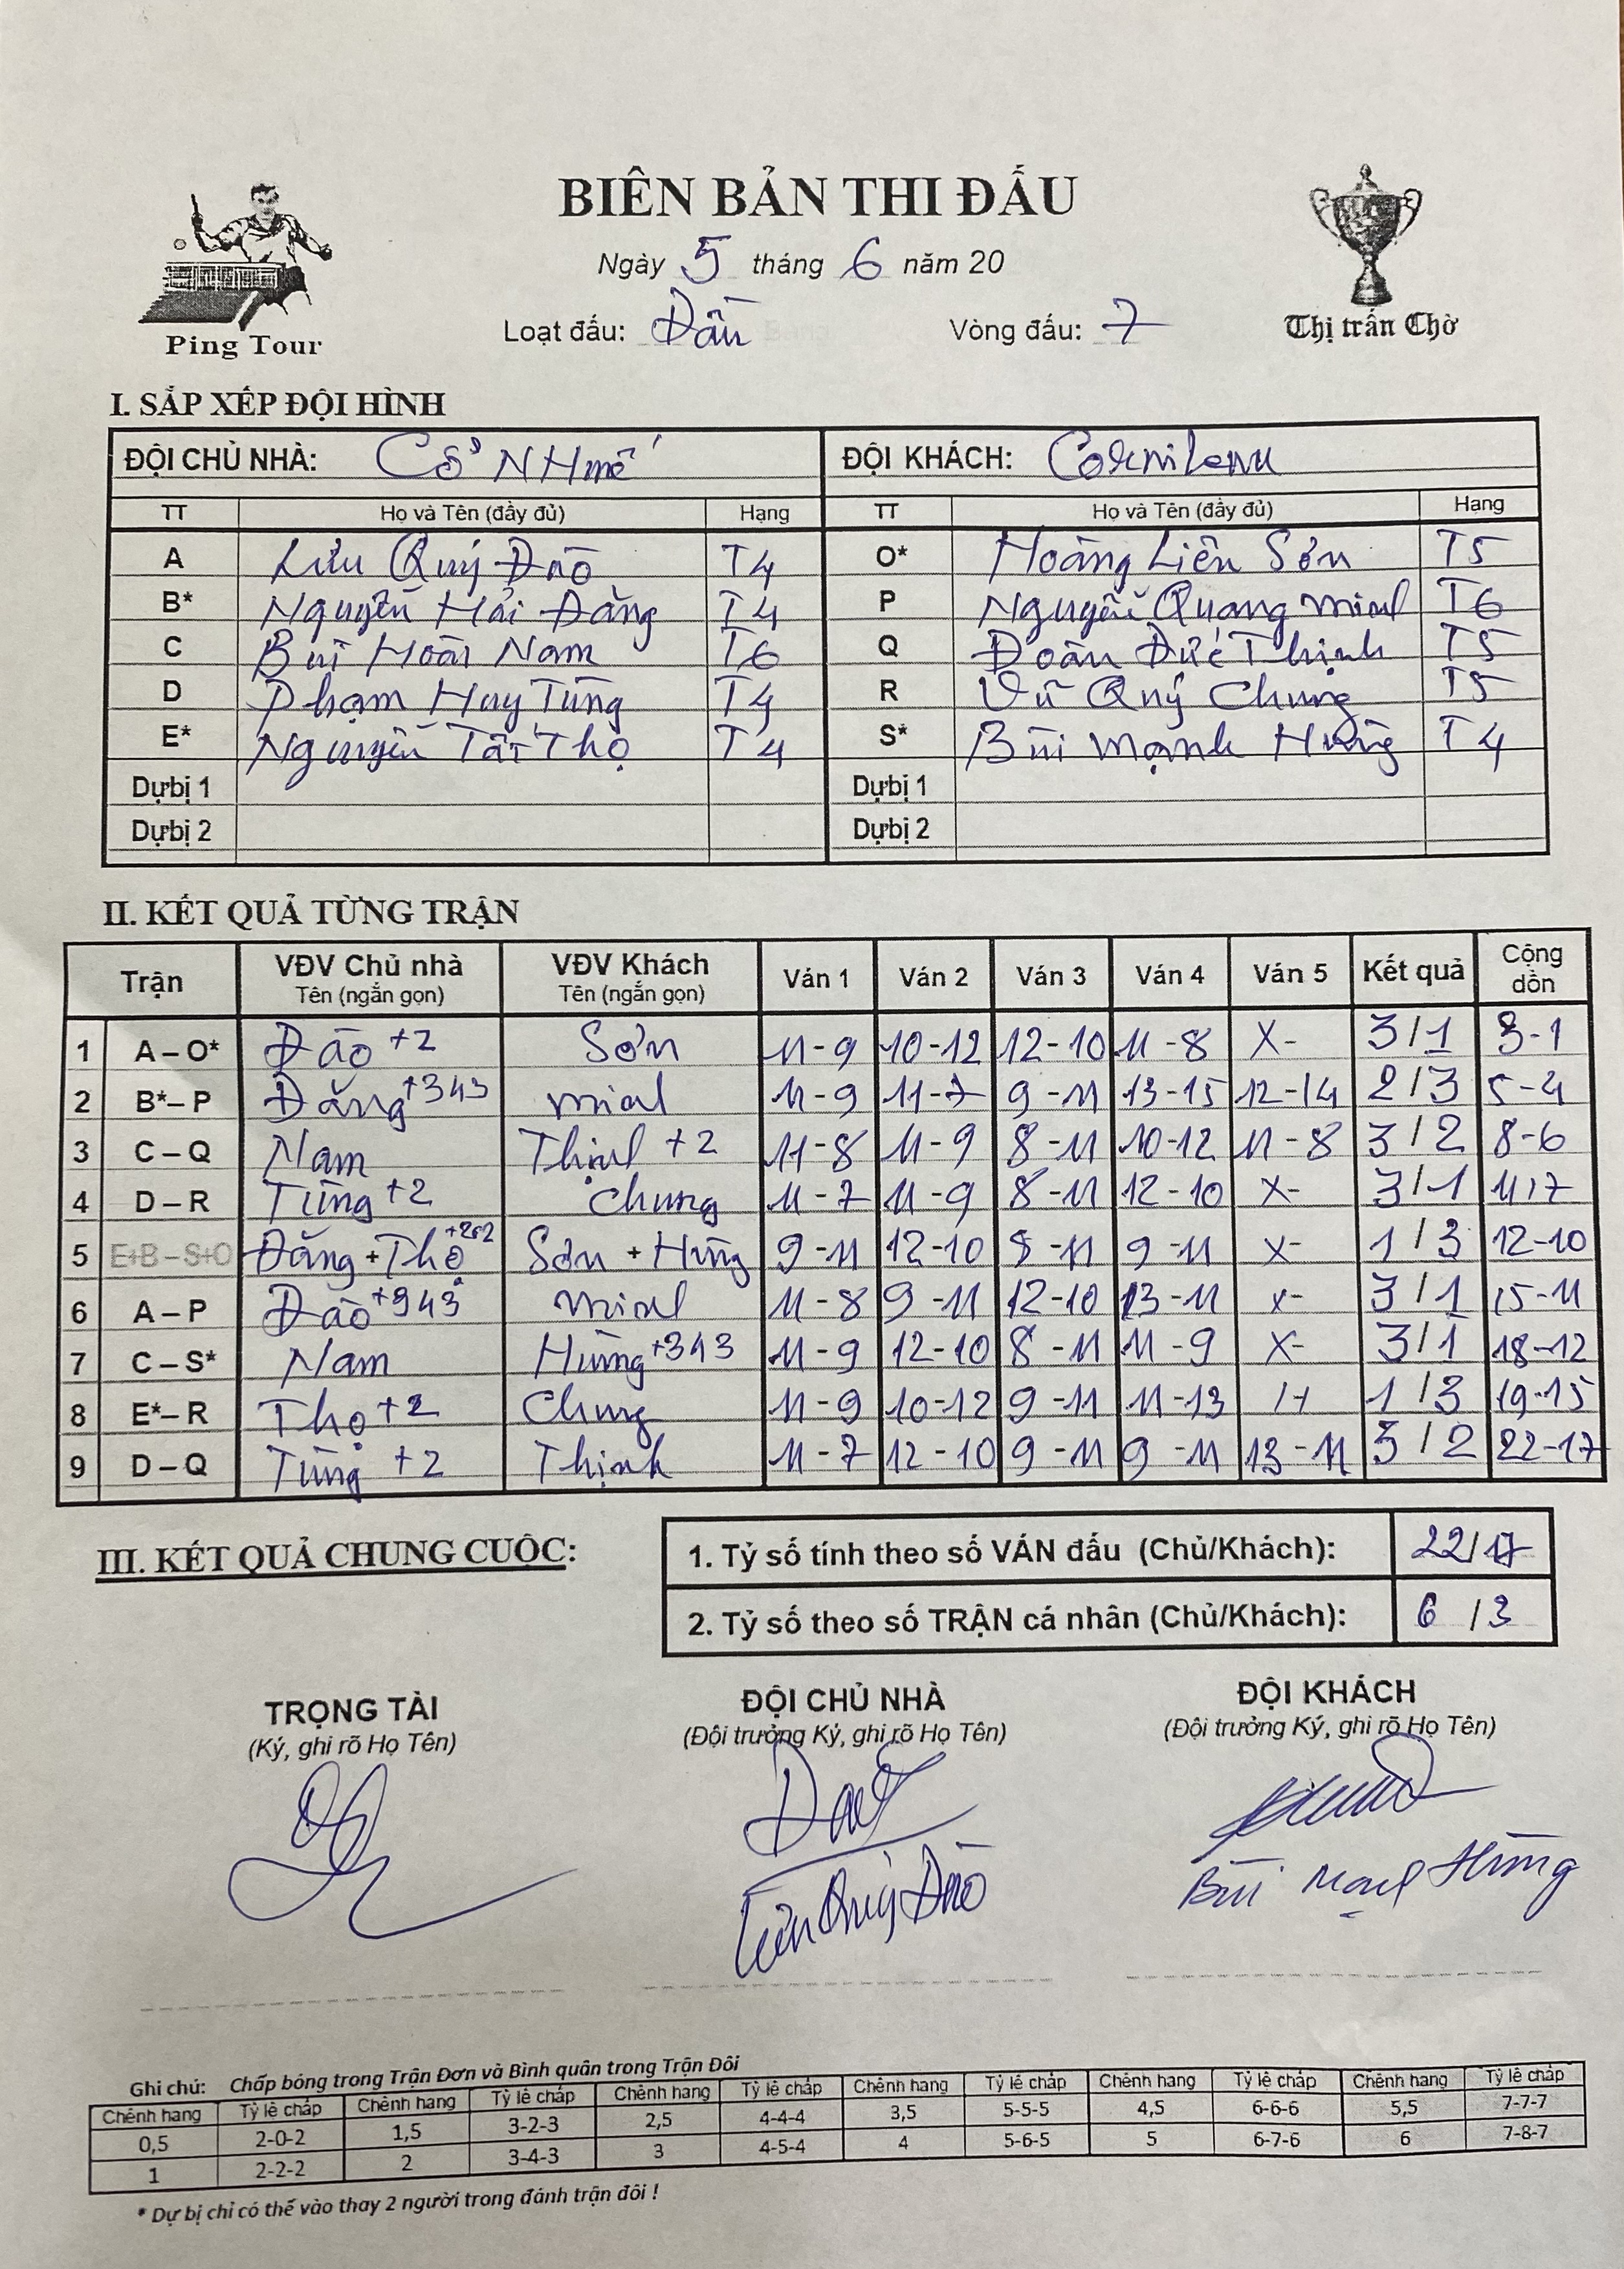 BIÊN BẢN THI ĐẤU
Ngày 5 tháng 6 năm 20
Loạt đấu: Đấu Vòng đấu: 7
Ping Tour
Thị trấn Chờ
I. SẮP XẾP ĐỘI HÌNH
ĐỘI CHỦ NHÀ: Cổ NHuế ĐỘI KHÁCH:
TT Họ và Tên (đầy đủ) Hạng TT Họ và Tên (đầy đủ) Hạng
A Lưu Quý Đào T4 O* Hoàng Liên Sơn T5
B* Nguyễn Hải Đăng T4 P Nguyễn Quang Minh T6
C Bùi Hoài Nam T6 Q Đoàn Đức Thịnh T5
D Phạm Huy Tùng T4 R Vũ Quý Chung T5
E* Nguyễn Tất Thọ T4 S* Bùi Mạnh Hùng T4
Dự bị 1 Dự bị 1
Dự bị 2 Dự bị 2
II. KẾT QUẢ TỪNG TRẬN
Trận VĐV Chủ nhà Tên (ngắn gọn) VĐV Khách Tên (ngắn gọn) Ván 1 Ván 2 Ván 3 Ván 4 Ván 5 Kết quả Cộng dồn
1 A – O* Đào +2 Sơn 11-9 10-12 12-10 11-8 X- 3/1 3-1
2 B* – P Đăng +343 Minh 11-9 11-7 9-11 13-15 12-14 2/3 5-4
3 C – Q Nam Thịnh +2 11-8 11-9 8-11 10-12 11-8 3/2 8-6
4 D – R Tùng +2 Chung 11-7 11-9 8-11 12-10 X- 3/1 11-7
5 E+B – S+O Đăng + Thọ +202 Sơn + Hùng 9-11 12-10 8-11 9-11 X- 1/3 12-10
6 A – P Đào +343 Minh 11-8 9-11 12-10 13-11 X- 3/1 15-11
7 C – S* Nam Hùng +343 11-9 12-10 8-11 11-9 X- 3/1 18-12
8 E* – R Thọ +2 Chung 11-9 10-12 9-11 11-13 1/3 19-15
9 D – Q Tùng +2 Thịnh 11-7 12-10 9-11 9-11 13-11 3/2 22-17
III. KẾT QUẢ CHUNG CUỘC:
1. Tỷ số tính theo số VÁN đấu (Chủ/Khách): 22/17
2. Tỷ số theo số TRẬN cá nhân (Chủ/Khách): 6/3
TRỌNG TÀI ĐỘI CHỦ NHÀ ĐỘI KHÁCH
(Ký, ghi rõ Họ Tên) (Đội trưởng Ký, ghi rõ Họ Tên) (Đội trưởng Ký, ghi rõ Họ Tên)
Lưu Quý Đào Bùi Mạnh Hùng
Ghi chú: Chấp bóng trong Trận Đơn và Bình quân trong Trận Đôi
Chênh hạng Tỷ lệ chấp Chênh hạng Tỷ lệ chấp Chênh hạng Tỷ lệ chấp Chênh hạng Tỷ lệ chấp Chênh hạng Tỷ lệ chấp Chênh hạng Tỷ lệ chấp
0,5 2-0-2 1,5 3-2-3 2,5 4-4-4 3,5 5-5-5 4,5 6-6-6 5,5 7-7-7
1 2-2-2 2 3-4-3 3 4-5-4 4 5-6-5 5 6-7-6 6 7-8-7
* Dự bị chỉ có thể vào thay 2 người trong đánh trận đôi !